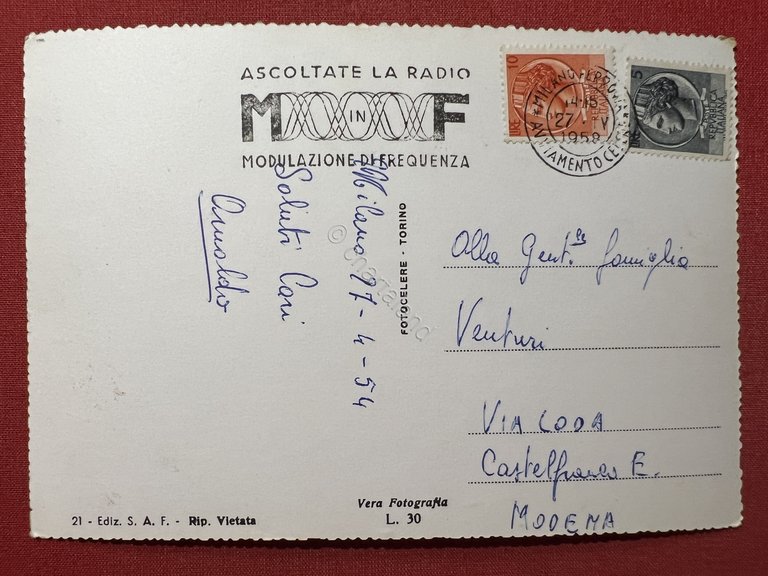 ASCOLTATE LA RADIO
M IN F
MODULAZIONE DI FREQUENZA
MILANO FERROVIA
14-15
27 V
1959
10
LIRE
5
LIRE
REPUBBLICA
ITALIANA
Milano 27-4-54
Saluti Cari
Arnaldo
FOTOCELERE - TORINO
© cartaland
Alla Gent.ma famiglia
Venturi
VIA LODA
Castelfranco E.
MODENA
21 - Ediz. S. A. F. - Rip. Vietata
Vera Fotografia
L. 30